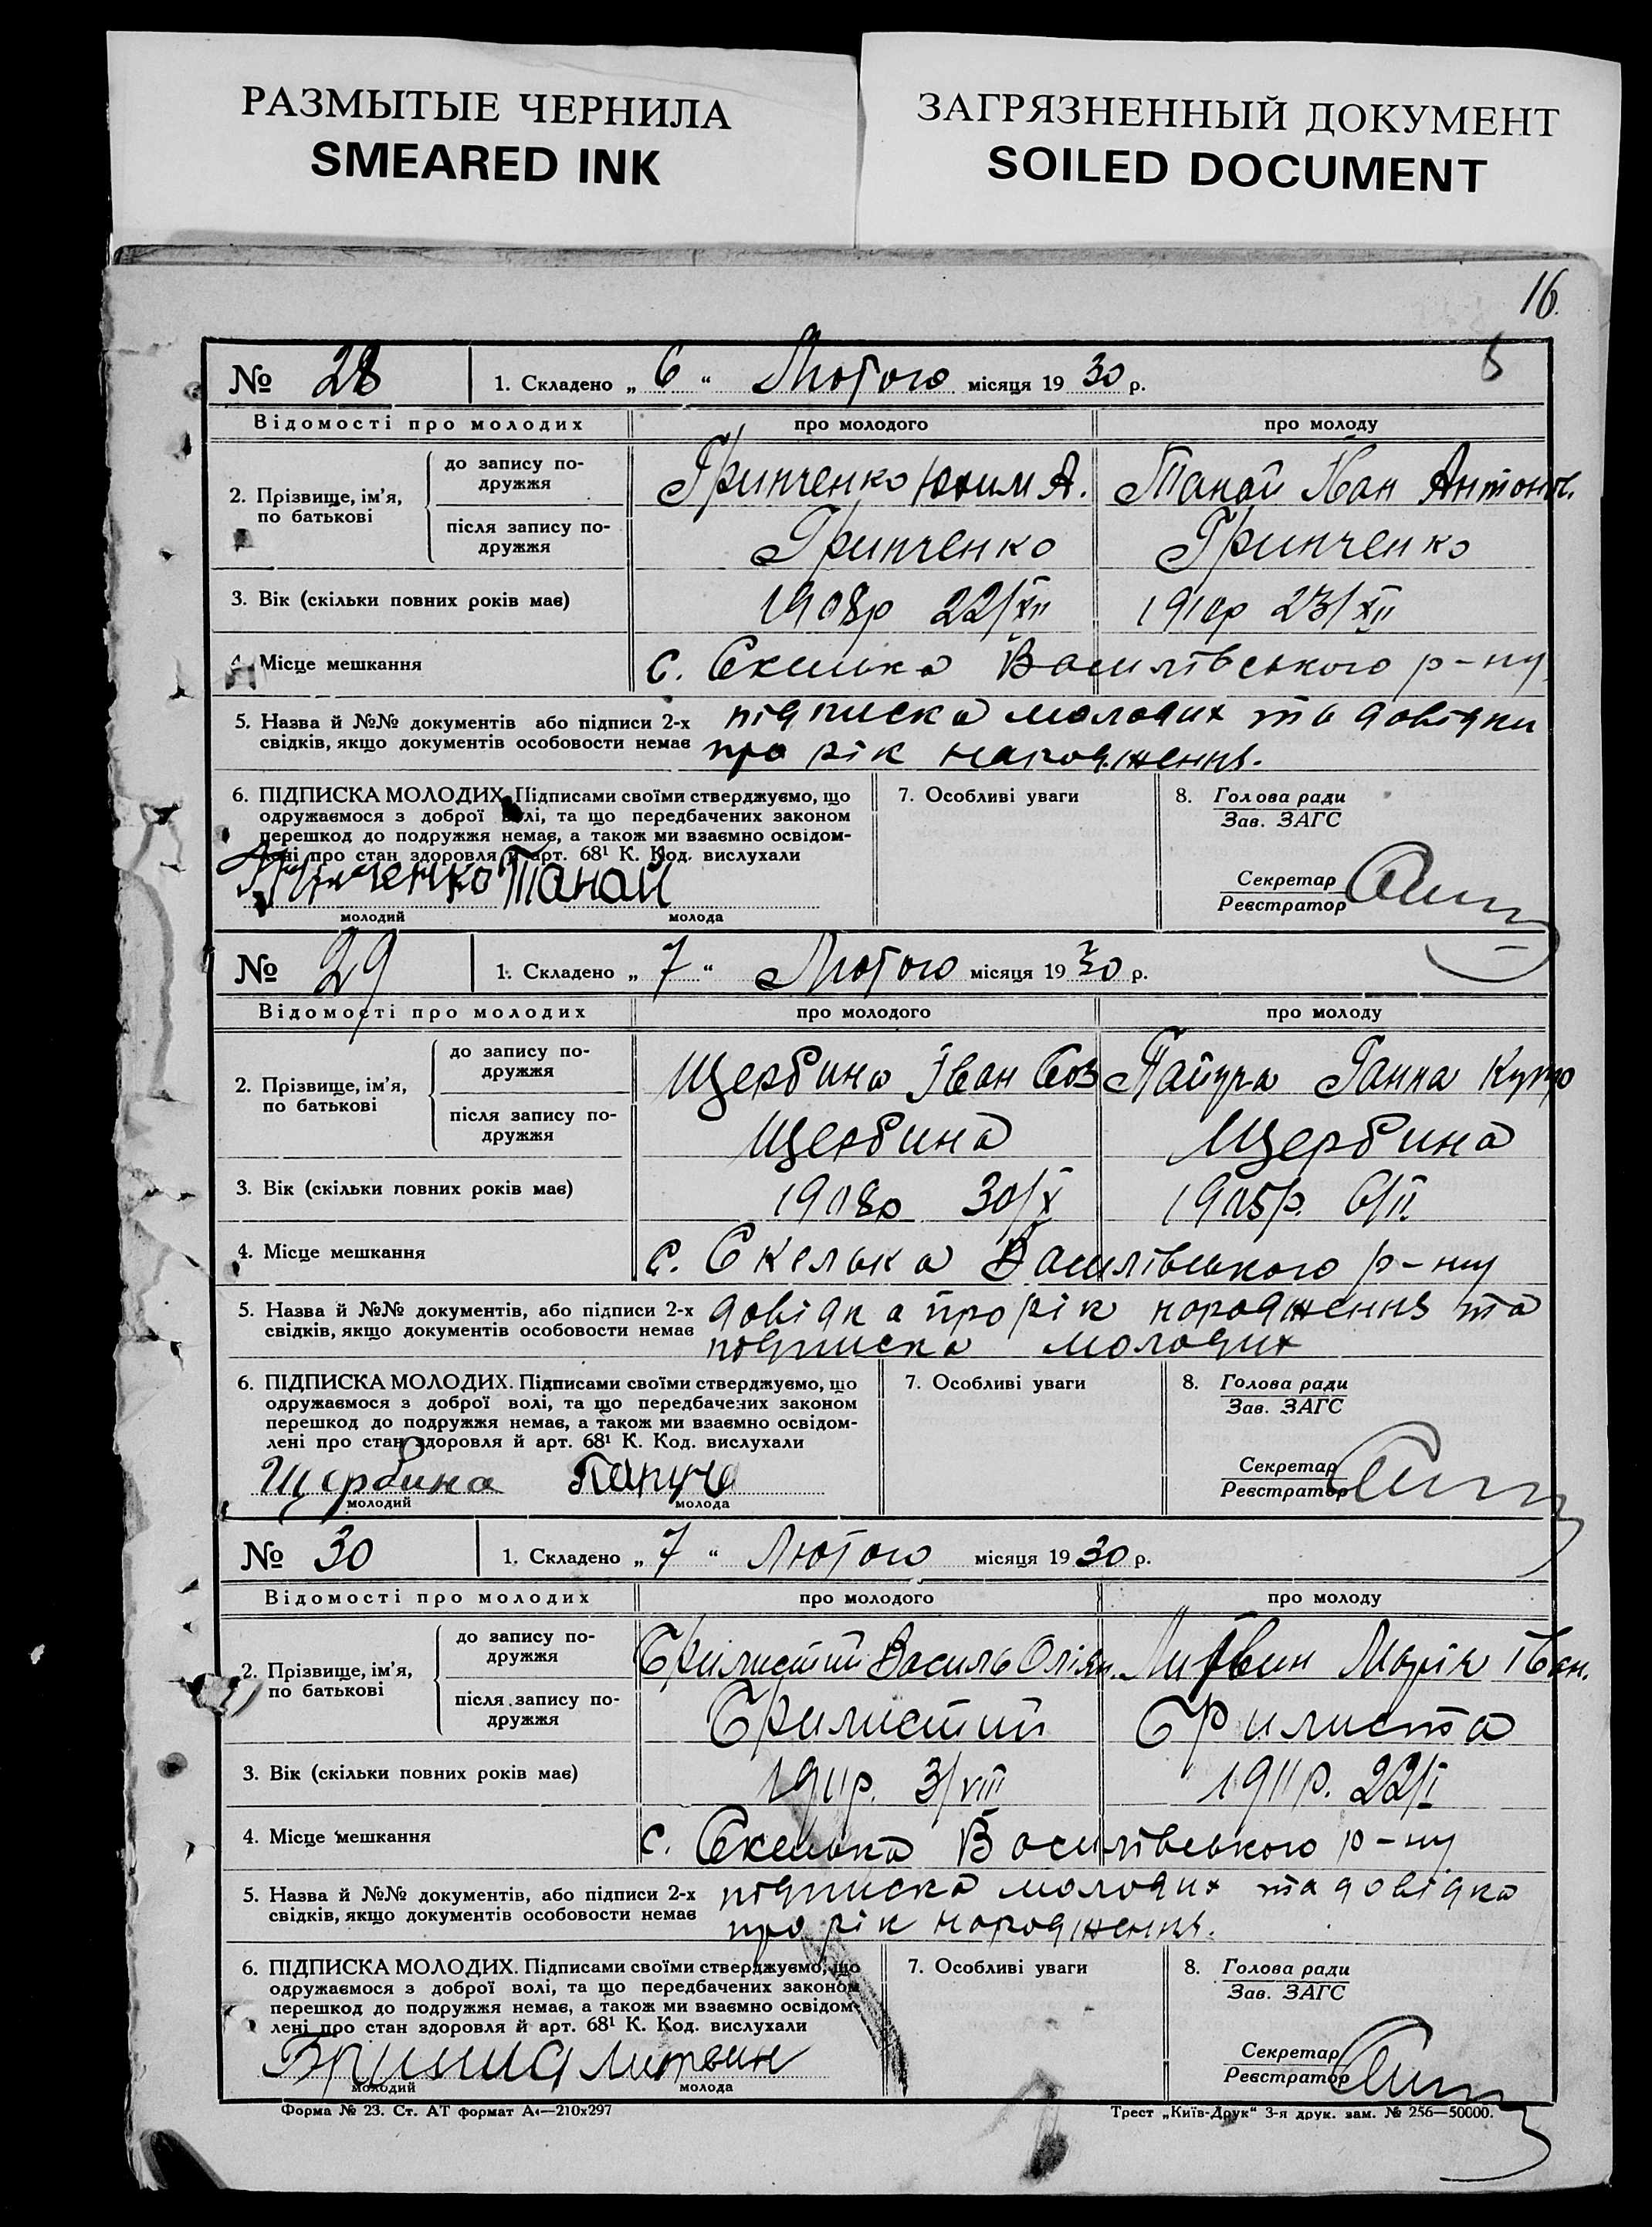 РАЗМЫТЫЕ ЧЕРНИЛА
SMEARED INK
ЗАГРЯЗНЕННЫЙ ДОКУМЕНТ
SOILED DOCUMENT
16.
№ 28 1. Складено „ 6 “ Лютого місяця 19 30 р.
Відомості про молодих про молодого про молоду
2. Прізвище, ім’я, по батькові
до запису по-
дружжя
Грипченко Юхим А. Танай Антонов.
після запису по-
дружжя
Грипченко Грипченко
3. Вік (скільки повних років має) 1908р 22/XII 1910р 23/XII
4. Місце мешкання с. Скелька Василівського р-ну
5. Назва й №№ документів або підписи 2-х
свідків, якщо документів особовости немає
підписка молодих та довідки
про рік народження.
6. ПІДПИСКА МОЛОДИХ. Підписами своїми стверджуємо, що
одружаємося з доброї волі, та що передбачених законом
перешкод до подружжя немає, а також ми взаємно освідом-
лені про стан здоровля й арт. 68¹ К. Код. вислухали
Грипченко Танай
молодий молода
7. Особливі уваги
8. Голова ради
Зав. ЗАГС
Секретар
Реєстратор
№ 29 1. Складено „ 7 “ Лютого місяця 19 30 р.
Відомості про молодих про молодого про молоду
2. Прізвище, ім’я, по батькові
до запису по-
дружжя
Щербина Іван Ганна
після запису по-
дружжя
Щербина Щербина
3. Вік (скільки повних років має) 1908р 30/X 1905р. 6/II
4. Місце мешкання с. Скелька Василівського р-ну
5. Назва й №№ документів, або підписи 2-х
свідків, якщо документів особовости немає
довідка про рік народження та
підписка молодих
6. ПІДПИСКА МОЛОДИХ. Підписами своїми стверджуємо, що
одружаємося з доброї волі, та що передбачених законом
перешкод до подружжя немає, а також ми взаємно освідом-
лені про стан здоровля й арт. 68¹ К. Код. вислухали
Щербина
молодий молода
7. Особливі уваги
8. Голова ради
Зав. ЗАГС
Секретар
Реєстратор
№ 30 1. Складено „ 7 “ Лютого місяця 19 30 р.
Відомості про молодих про молодого про молоду
2. Прізвище, ім’я, по батькові
до запису по-
дружжя
Василь Литвин Марія Іван.
після запису по-
дружжя
3. Вік (скільки повних років має) 1911р. 3/VIII 1911р. 22/I
4. Місце мешкання с. Скелька Василівського р-ну
5. Назва й №№ документів, або підписи 2-х
свідків, якщо документів особовости немає
підписка молодих та довідка
про рік народження.
6. ПІДПИСКА МОЛОДИХ. Підписами своїми стверджуємо, що
одружаємося з доброї волі, та що передбачених законом
перешкод до подружжя немає, а також ми взаємно освідом-
лені про стан здоровля й арт. 68¹ К. Код. вислухали
Литвин
молодий молода
7. Особливі уваги
8. Голова ради
Зав. ЗАГС
Секретар
Реєстратор
Форма № 23. Ст. АТ формат А₄—210x297
Трест „Київ-Друк“ 3-я друк. зам. № 256—50000.